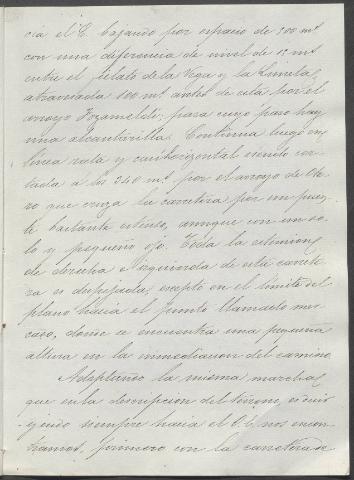 cia el E. bajando por espacio de 300 m.
con una diferencia de nivel de 12 m.
entre el fielato de la Vega y la Luneta,
atravesada 100 m. antes de esta por el
arroyo para cuyo paso hay
una alcantarilla. Continua luego en
linea recta y casi horizontal siendo cor-
tada á los 240 m. por el arroyo de
ro que cruza la carretera por un puen-
te bastante estenso, aunque con un so-
lo y pequeño ojo. Toda la estension
de derecha é izquierda de esta carrete-
ra es despejada, escepto en el limite del
plano hacia el punto llamado
donde se encuentra una pequeña
altura en la inmediacion del camino
Adoptando la misma marcha,
que en la descripcion del terreno, es decir
siempre hacia el O. E. nos encon-
tramos, primero con la carretera de